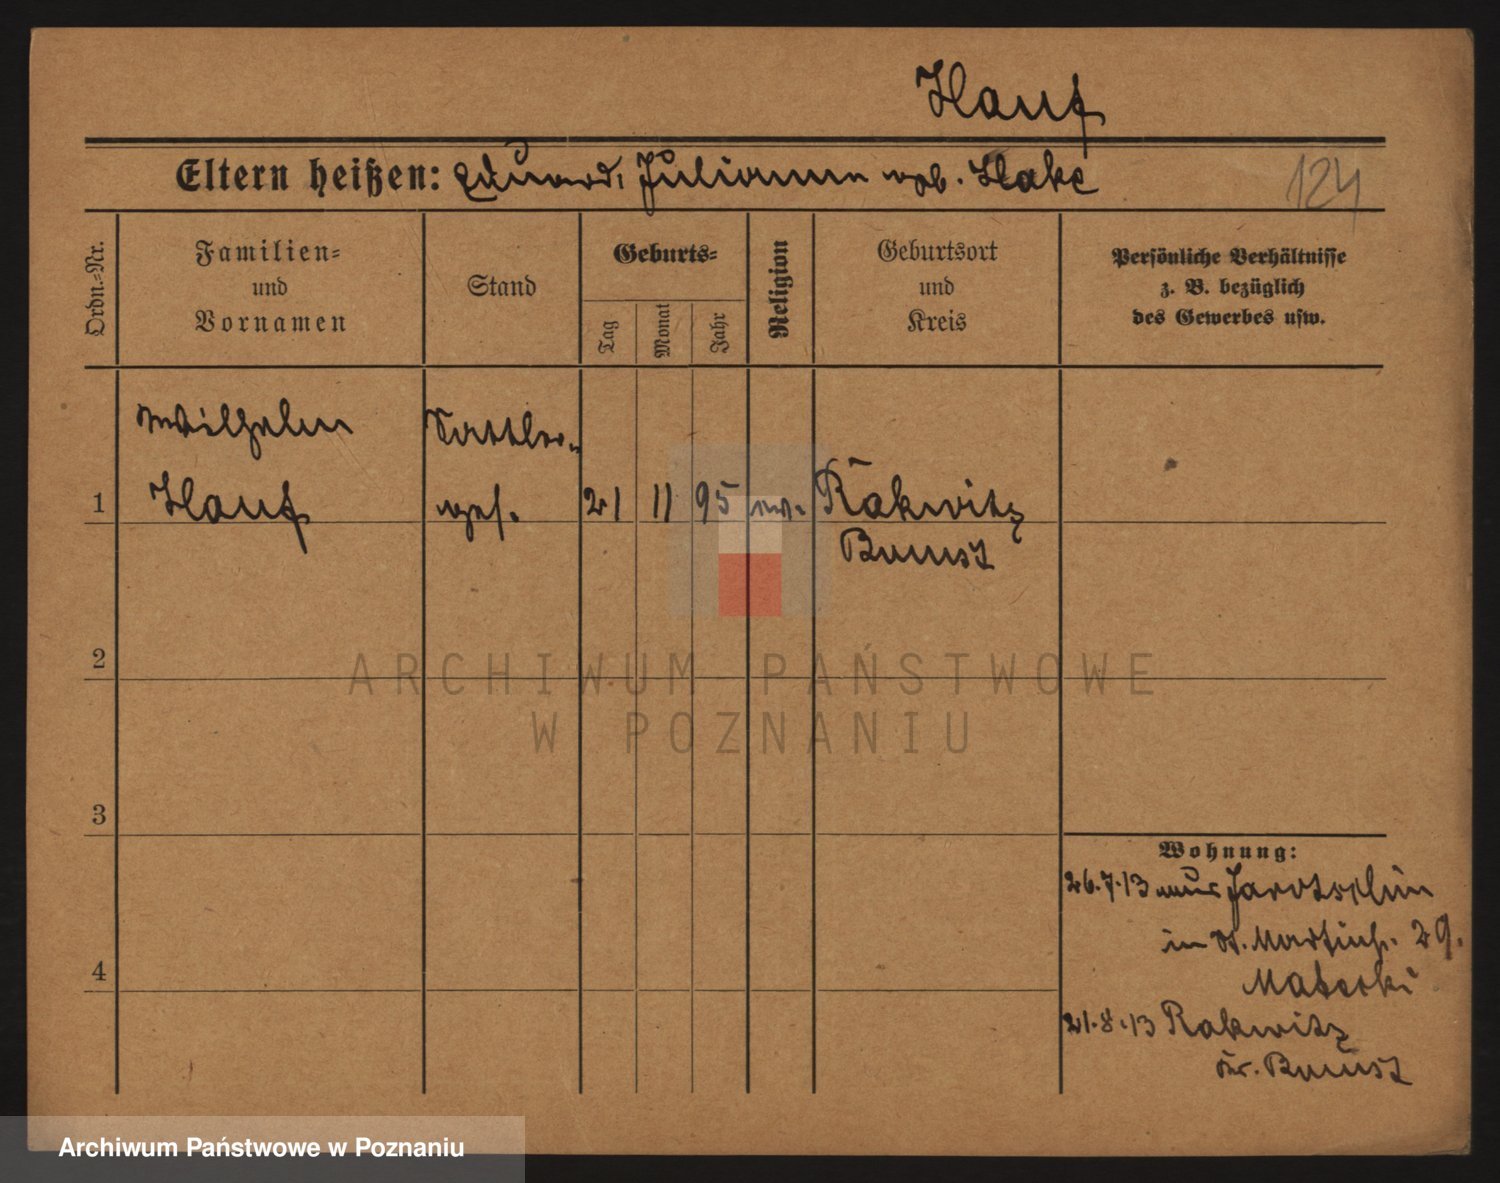 Hauf
Eltern heißen: Eduard, Julianna geb. Hake
124
Ordn.-Nr.
Familien-
und
Vornamen
Stand
Geburts-
Tag
Monat
Jahr
Religion
Geburtsort
und
Kreis
Persönliche Verhältnisse
z. B. bezüglich
des Gewerbes usw.
Wilhelm Sattler-
1 Hauf ges. 21 11 95 ev. Rakwitz
Bomst
2
3
4
Wohnung:
26.7.13 aus Jarotschin
in St. Martinstr. 29.
21.8.13 Rakwitz
Kr. Bomst
ARCHIWUM PAŃSTWOWE
W POZNANIU
Archiwum Państwowe w Poznaniu